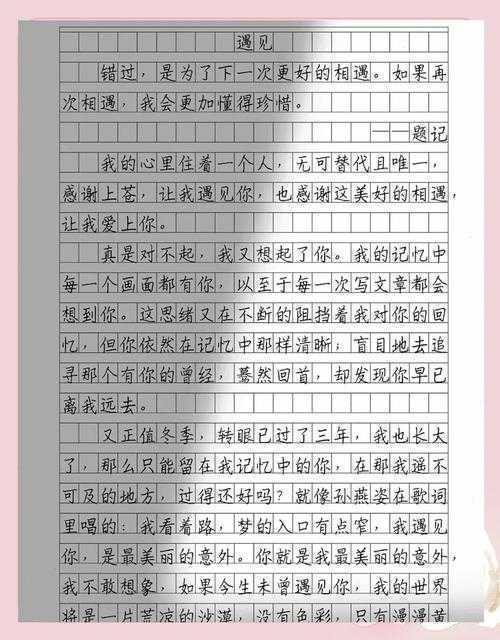 遇见
错过，是为了下一次更好的相遇。如果再
次相遇，我会更加懂得珍惜。
——题记
我的心里住着一个人，无可替代且唯一，
感谢上苍，让我遇见你，也感谢这美好的相遇，
让我爱上你。
真是对不起，我又想起了你。我的记忆中
每一个画面都有你，以至于每一次写文章都会
想到你。这思绪又在不断的阻挡着我对你的回
忆，但你依然在记忆中那样清晰；盲目地去追
寻那个有你的曾经，蓦然回首，却发现你早已
离我远去。
又正值冬季，转眼已过了三年，我也长大
了，那么只能留在我记忆中的你，在那我遥不
可及的地方，过得还好吗？就像孙燕姿在歌词
里唱的：我看着路，梦的入口有点窄，我遇见
你，是最美丽的意外。你就是我最美丽的意外，
我不敢想象，如果今生未曾遇见你，我的世界
将是一片荒凉的沙漠，没有色彩，只有漫漫黄